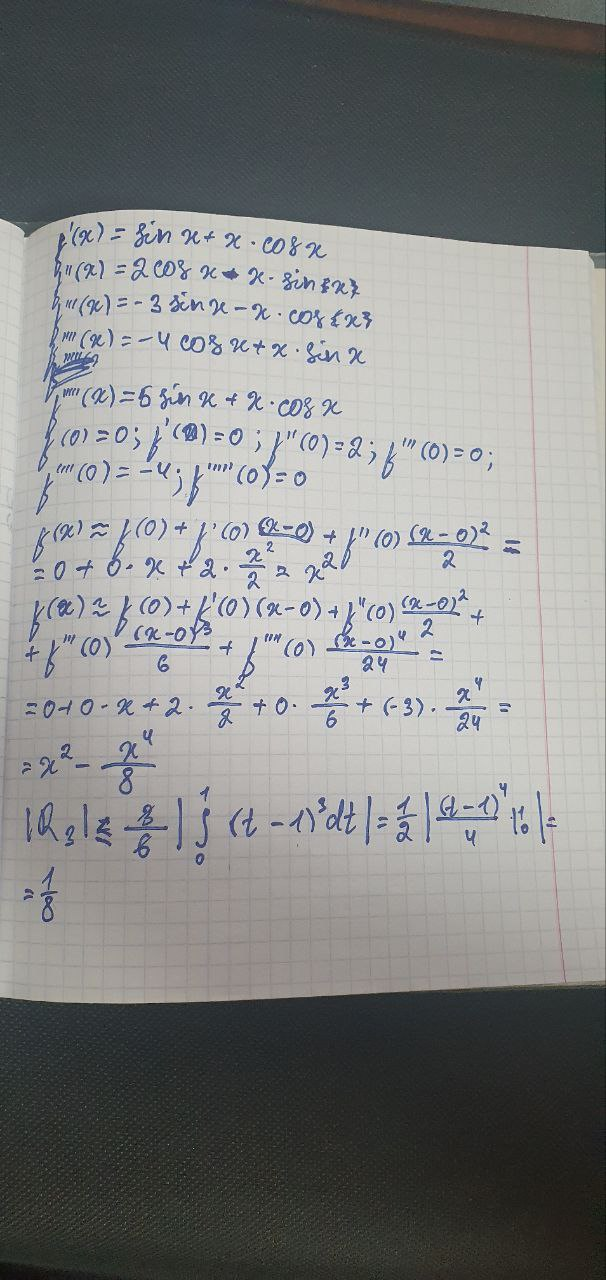 f'(x) = sin x + x · cos x
f''(x) = 2 cos x - x · sin{x}
f'''(x) = -3 sin x - x · cos{x}
f''''(x) = -4 cos x + x · sin x
f'''''(x) = 5 sin x + x · cos x
f(0) = 0; f'(0) = 0; f''(0) = 2; f'''(0) = 0;
f''''(0) = -4; f'''''(0) = 0
f(x) ≈ f(0) + f'(0) (x-0) + f''(0) (x-0)²/2 =
= 0 + 0 · x + 2 · x²/2 = x²
f(x) ≈ f(0) + f'(0) (x-0) + f''(0) (x-0)²/2 +
+ f'''(0) (x-0)³/6 + f''''(0) (x-0)⁴/24 =
= 0 + 0 · x + 2 · x²/2 + 0 · x³/6 + (-3) · x⁴/24 =
= x² - x⁴/8
|R₃| ≤ 3/6 | ∫₀¹ (t-1)³ dt | = 1/2 | (t-1)⁴/4 |₀¹ | =
= 1/8